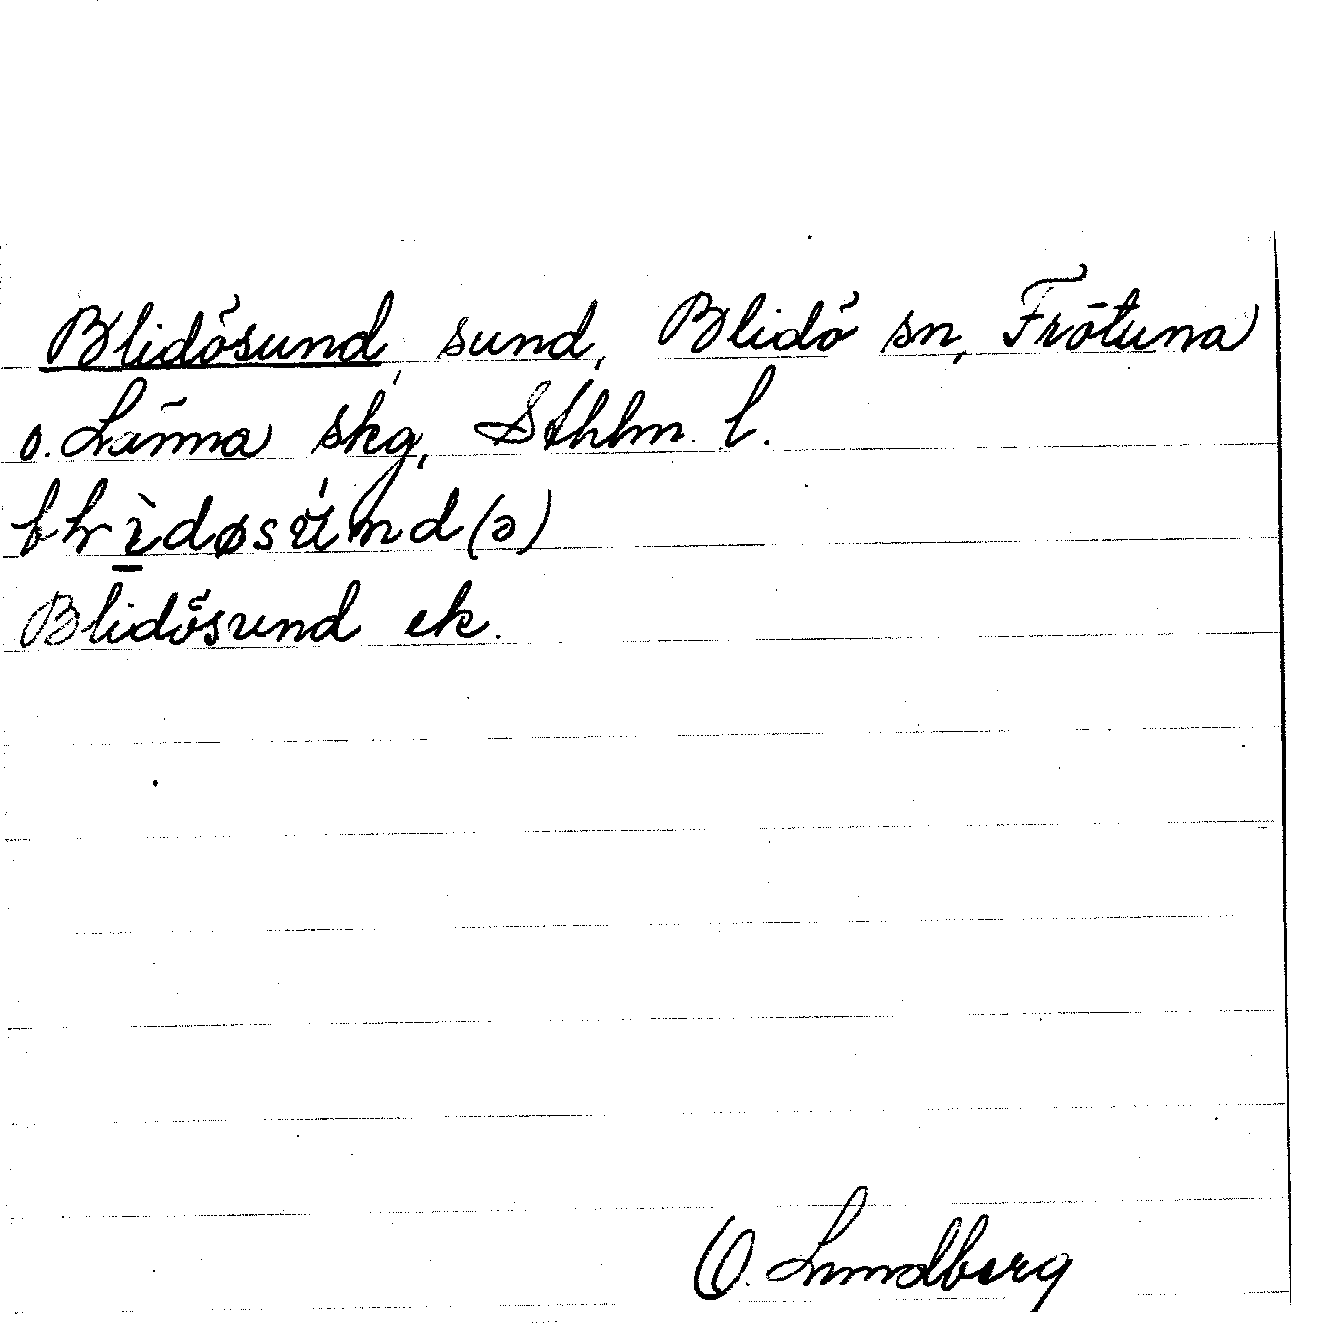 Blidösund, sund, Blidö sn, Frötuna
o. Länna skg, Sthlm l.
Blidösund ek.
O. Lundberg